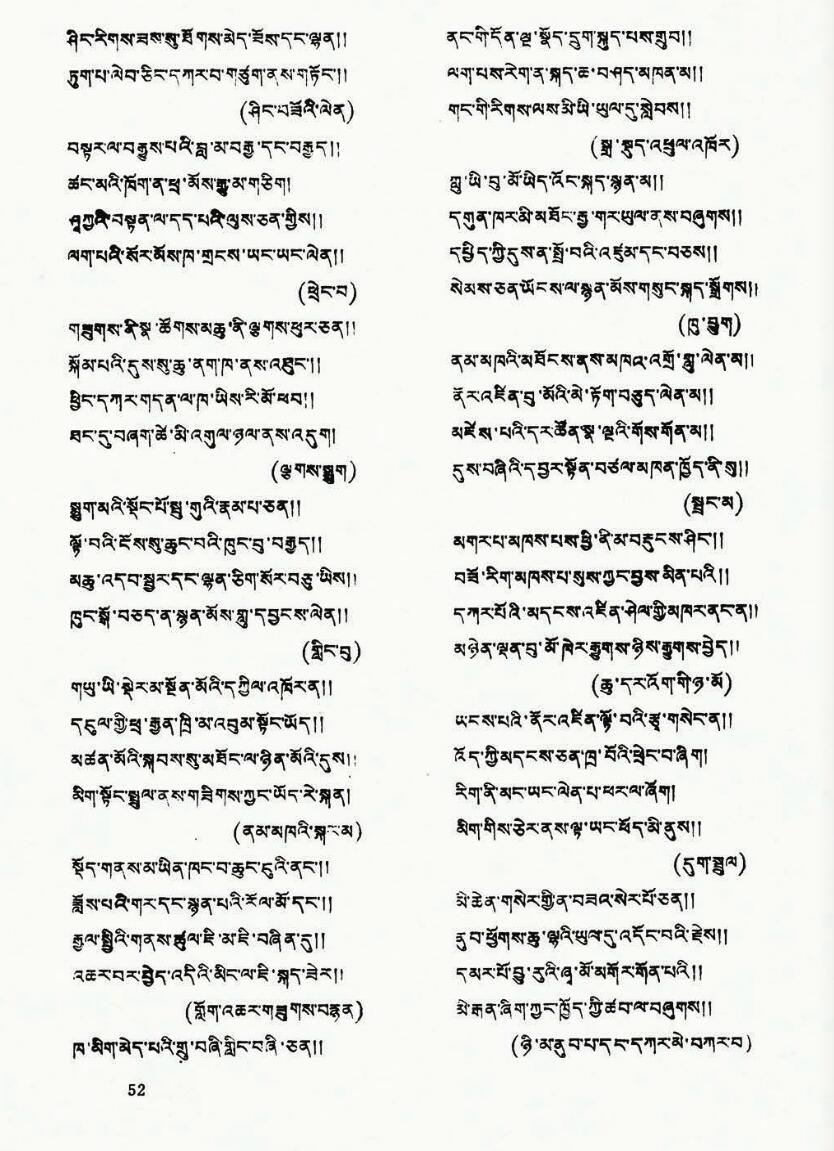 ཤིང་རིགས་ཟས་སུ་ཐོགས་མེད་ཟོས་དང་ལྡན།།
ཏུག་པ་ལེབ་ཅིང་དཀར་བ་གཙུག་ནས་གཏོང་།།
(ཤིང་བཟོའི་ལེན)
བསྟར་ལ་བརྒྱུས་པའི་བླ་མ་བརྒྱ་དང་བརྒྱད།།
ཚང་མའི་ཁོག་ན་ཕྲ་མོས་རྒྱུ་མ་གཅིག།
ཤཱཀྱའི་བསྟན་ལ་དད་པའི་ལུས་ཅན་གྱིས།།
ལག་པའི་སོར་མོས་ཁ་གྲངས་ཡང་ཡང་ལེན།།
(ཕྲེང་བ)
གཟུགས་ནི་སྣ་ཚོགས་མཆུ་ནི་ལྕགས་ཕུར་ཅན།།
སྐོམ་པའི་དུས་སུ་ཆུ་ནག་ཁ་ནས་འཐུང་།།
ཕྱིང་དཀར་གདན་ལ་ཁ་ཡིས་རི་མོ་ཕབ།།
ཐང་དུ་བཞག་ཚེ་མི་འགུལ་ཉལ་ནས་འདུག།
(ལྕགས་སྨྱུག)
སྨྱུག་མའི་སྡོང་པོ་སྦུ་གུའི་རྣམ་པ་ཅན།།
ལྟོ་བའི་ངོས་སུ་ཆུང་བའི་ཁུང་བུ་བརྒྱད།།
མཆུ་འདབ་སྦྱར་དང་ལྷན་ཅིག་སོར་བཅུ་ཡིས།།
ཁུང་སྒོ་བཅད་ན་སྙན་མོས་གླུ་དབྱངས་ལེན།།
(གླིང་བུ)
གཡུ་ཡི་སྡེར་མ་སྔོན་མོའི་དཀྱིལ་འཁོར་ན།།
དངུལ་གྱི་ཕྲ་རྒྱན་ཁྲི་མ་འབུམ་སྟོང་ཡོད།།
མཚན་མོའི་སྐབས་སུ་མཐོང་ལ་ཉིན་མོའི་དུས།།
མིག་སྟོང་སྤྲུལ་ནས་གཟིགས་ཀྱང་ཡོད་རེ་སྐན།
(ནམ་མཁའི་སྐར་མ)
སྡོད་གནས་མ་ཡིན་ཁང་བ་ཆུང་ངུའི་ནང་།།
ཟློས་པའི་གར་དང་སྙན་པའི་རོལ་མོ་དང་།།
རྒྱལ་སྤྱིའི་གནས་ཚུལ་ཇི་མ་ཇི་བཞིན་དུ།།
འཆར་བར་བྱེད་འདིའི་མིང་ལ་ཇི་སྐད་ཟེར།།
(གློག་འཆར་གཟུགས་བརྙན)
ཁ་མིག་མེད་པའི་གྲུ་བཞི་གླིང་བཞི་ཅན།།
ནང་གི་དོན་ལྔ་སྣོད་དྲུག་སྐུད་པས་གྲུབ།།
ལག་པས་རེག་ན་སྐད་ཆ་བཤད་མཁན་མ།།
གང་གི་རིགས་ལས་མི་ཡི་ཡུལ་དུ་སླེབས།།
(སྒྲ་སྡུད་འཕྲུལ་འཁོར)
ཀླུ་ཡི་བུ་མོ་ཡིད་འོང་སྐད་སྙན་མ།།
དགུན་ཁར་མི་མཐོང་རྒྱ་གར་ཡུལ་ནས་བཞུགས།།
དཔྱིད་ཀྱི་དུས་ན་སྤྲོ་བའི་འཛུམ་དང་བཅས།།
སེམས་ཅན་ཡོངས་ལ་སྙན་མོས་གསུང་སྐད་སྒྲོགས།།
(ཁུ་བྱུག)
ནམ་མཁའི་མཐོངས་ནས་མཁའ་འགྲོ་གླུ་ལེན་མ།།
ནོར་འཛིན་བུ་མོའི་མེ་ཏོག་བཅུད་ལེན་མ།།
མཛེས་པའི་དར་ཚོན་སྣ་ལྔའི་གོས་གོན་མ།།
དུས་བཞིའི་དབྱར་སྟོན་བཙལ་མཁན་ཁྱོད་ནི་སུ།།
(སྦྲང་མ)
མགར་པ་མཁས་པས་ཕྱི་ནི་མ་བརྡུངས་ཤིང་།།
བཟོ་རིག་མཁས་པ་སུས་ཀྱང་བྱས་མིན་པའི།།
དཀར་པོའི་མདངས་འཛིན་ཤེལ་གྱི་མཁར་ནང་ན།།
མཉེན་ལྡན་བུ་མོ་ཁེར་རྒྱུགས་ཉིས་རྒྱུགས་བྱེད།།
(ཆུ་དར་འོག་གི་ཉ་མོ)
ཡངས་པའི་ནོར་འཛིན་ལྟོ་བའི་རྩྭ་གསེང་ན།།
འོད་ཀྱི་མདངས་ཅན་ཁྲ་བོའི་ཕྲེང་བ་ཞིག།
རིག་ནི་མང་ཡང་ལེན་པ་ཕར་ལ་ཞོག།
མིག་གིས་ཅེར་ནས་ལྟ་ཡང་ཕོད་མི་ནུས།།
(དུག་སྦྲུལ)
མེ་ཆེན་གསེར་གྱི་ན་བཟའ་སེར་པོ་ཅན།།
ནུབ་ཕྱོགས་ཆུ་ལྷའི་ཡུལ་དུ་འདོང་བའི་རྗེས།།
དམར་པོ་བྱུ་རུའི་ཞྭ་མོ་མགོར་གོན་པའི།།
མེ་རྒན་ཞིག་ཀྱང་ཁྱོད་ཀྱི་ཚབ་ལ་བཞུགས།།
(ཉི་མ་ནུབ་པ་དང་དཀར་མེ་བཀར་བ)
52